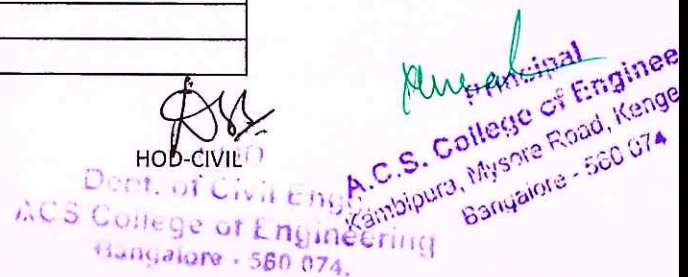 HOD-CIVIL
Dept. of Civil Engg.
ACS College of Engineering
Bangalore - 560 074.
Principal
A.C.S. College of Enginee
Kambipura, Mysore Road, Kenge
Bangalore - 560 074